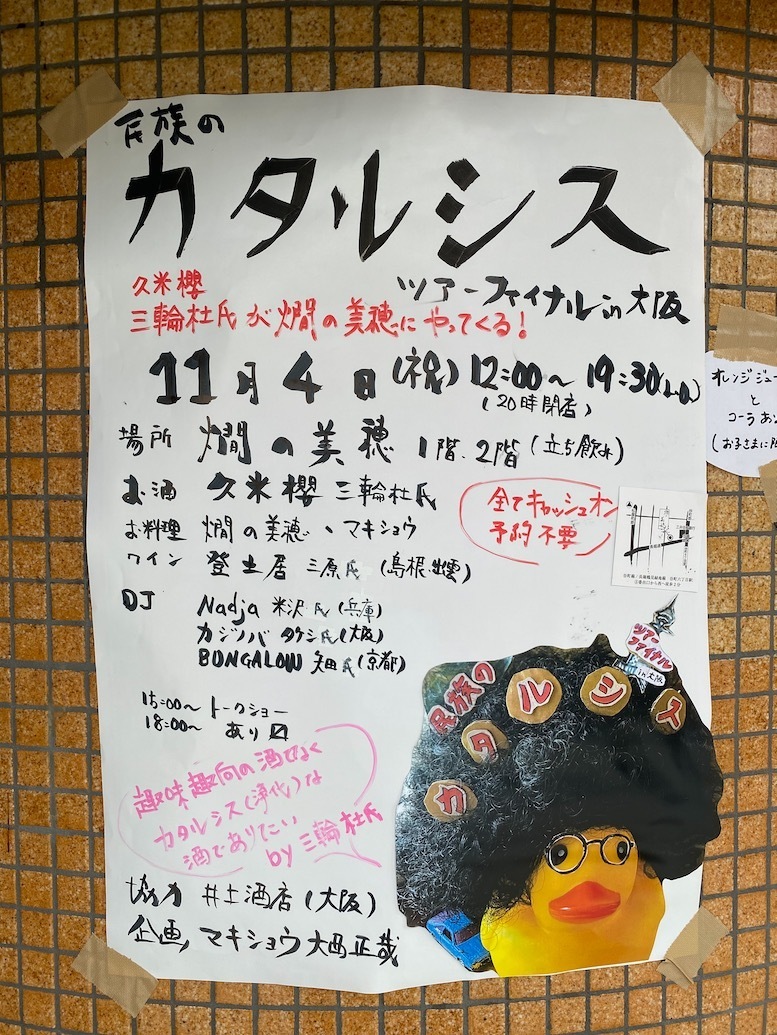 民族の
カタルシス
ツアーファイナル in 大阪
久米櫻
三輪杜氏が燗の美穂にやってくる!
11月4日(祝)12:00~19:30(L.O.)
(20時閉店)
場所 燗の美穂 1階、2階(立ち飲み)
お酒 久米櫻 三輪杜氏
お料理 燗の美穂、マキショウ
ワイン 登土居 三原氏(島根・出雲)
全てキャッシュオン
予約不要
DJ Nadja 米沢氏(兵庫)
カジノバ タケシ氏(大阪)
BUNGALOW 矢田氏(京都)
15:00~ トークショー
18:00~ あり
趣味趣向の酒でなく
カタルシス(浄化)な
酒でありたい
by 三輪杜氏
協力 井上酒店(大阪)
企画, マキショウ 大西正哉
ツアー
ファイナル
in大阪
民族の
カタルシス
オレンジジュー
と
コーラあ
(お子さまに